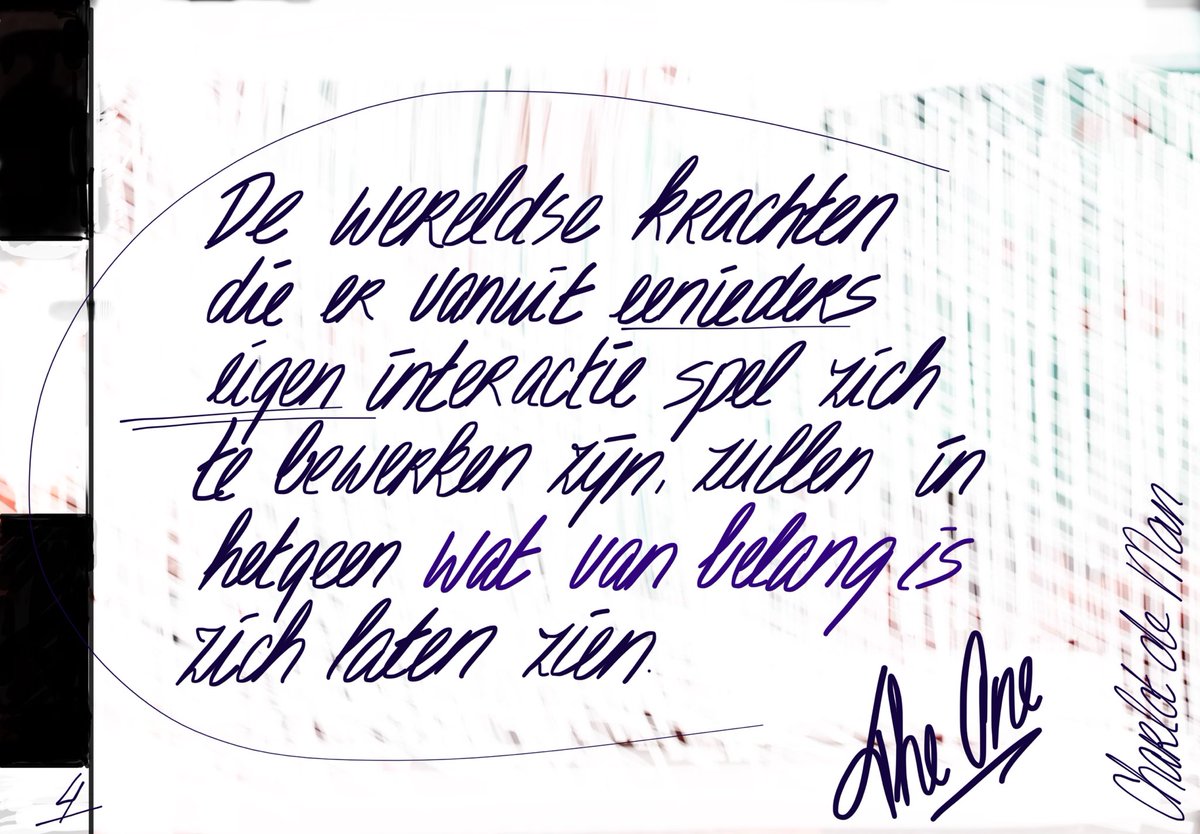 De wereldse krachten
die er vanuit eenieders
eigen interactie spel zich
te bewerken zijn, zullen in
hetgeen wat van belang is
zich laten zien.
The One
Charlot de Man
4